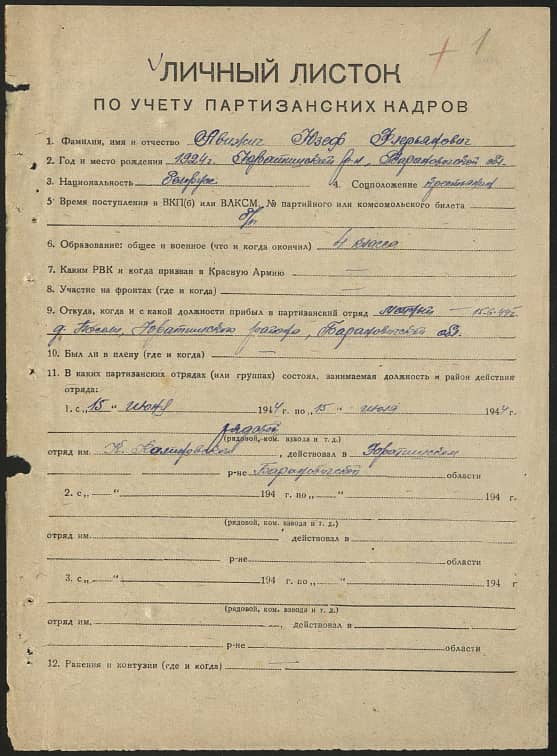 1
ЛИЧНЫЙ ЛИСТОК
ПО УЧЕТУ ПАРТИЗАНСКИХ КАДРОВ
1. Фамилия, имя и отчество Юзеф
2. Год и место рождения 1924г. р-н, Барановичской обл.
3. Национальность Белорус 4. Соцположение
5. Время поступления в ВКП(б) или ВЛКСМ, № партийного или комсомольского билета
б/п
6. Образование: общее и военное (что и когда окончил) 4 класса
7. Каким РВК и когда призван в Красную Армию —
8. Участие на фронтах (где и когда) —
9. Откуда, когда и с какой должности прибыл в партизанский отряд
д. района, Барановичской обл.
10. Был ли в плену (где и когда) —
11. В каких партизанских отрядах (или группах) состоял, занимаемая должность и район действия
отряда:
1. с „15 " июня 1944 г. по „15 " июля 1944 г.
рядовой
(рядовой, ком. взвода и т. д.)
отряд им. К. Калиновского, действовал в
р-не Барановичской области
2. с „—" 194 г. по „—" 194 г.
(рядовой, ком. взвода и т. д.)
отряд им. действовал в
р-не области
3. с „—" 194 г. по „—" 194 г
(рядовой, ком. взвода и т. д.)
отряд им. , действовал в
р-не области
12. Ранения и контузии (где и когда) —